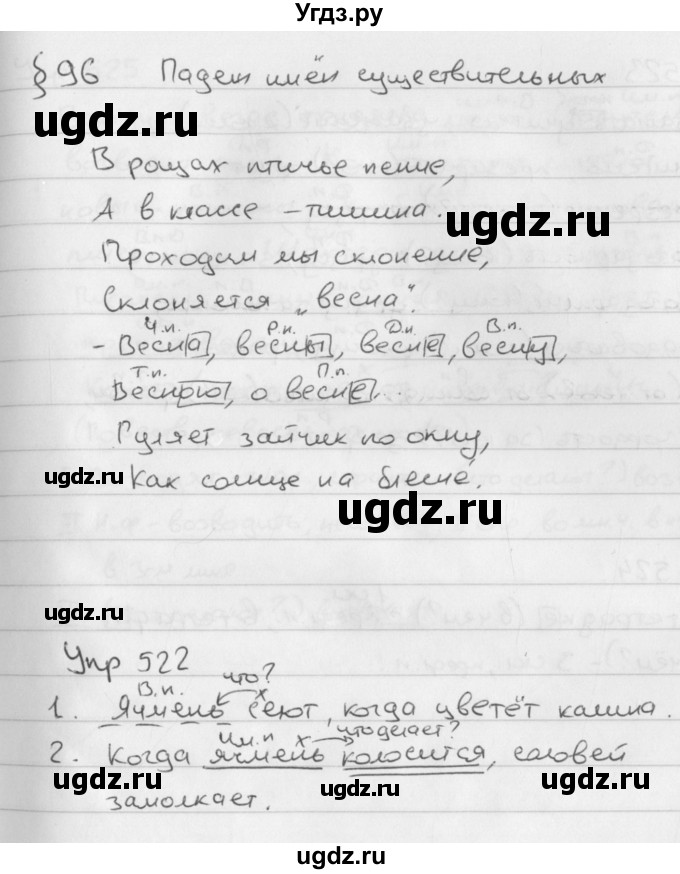 Угдз.ру
§ 96 Падеж имён существительных
ugdz.ru
В рощах птичье пение,
А в классе – тишина.
ugdz.ru
Проходим мы склонение,
Склоняется „весна".
И.п. Р.п. Д.п. В.п.
- Весна, весны, весне, весну,
Т.п. П.п.
Весною, о весне...
Гуляет зайчик по окну,
ugdz.ru
Как солнце на блесне.
ugdz.ru
ugdz.ru
Упр 522
что?
В.п. х
1. Ячмень сеют, когда цветёт калина.
Им.п х что делает?
2. Когда ячмень колосится, соловей
замолкает.
ugdz.ru
ugdz.ru
ugdz.ru
ugdz.ru